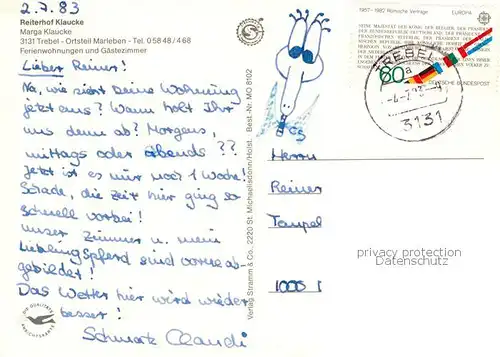 2.7.83
Reiterhof Klaucke
Marga Klaucke
3131 Trebel - Ortsteil Marleben - Tel. 0 58 48 / 4 68
Ferienwohnungen und Gästezimmer
Lieber Reiner!
Na, wie sieht deine Wohnung
jetzt aus? Wann holt Ihr
uns denn ab? Morgens,
mittags oder abends??
Jetzt ist es nur noch 1 Woche!
Schade, die Zeit hier ging so
schnell vorbei!
Unser Zimmer u. mein
Lieblingspferd sind vorne ab-
gebildet!
Das Wetter hier wird wieder
besser!
Schmatz Claudi
DIE QUALITÄTS
ANSICHTSKARTE
Verlag Stramm & Co., 2220 St. Michaelisdonn/Holst. Best.-Nr. MO 8602
1957-1982 Römische Verträge EUROPA
60
DEUTSCHE BUNDESPOST
TREBEL
a
3131
Herrn
Reiner
Tampel
1000 1
privacy protection
Datenschutz